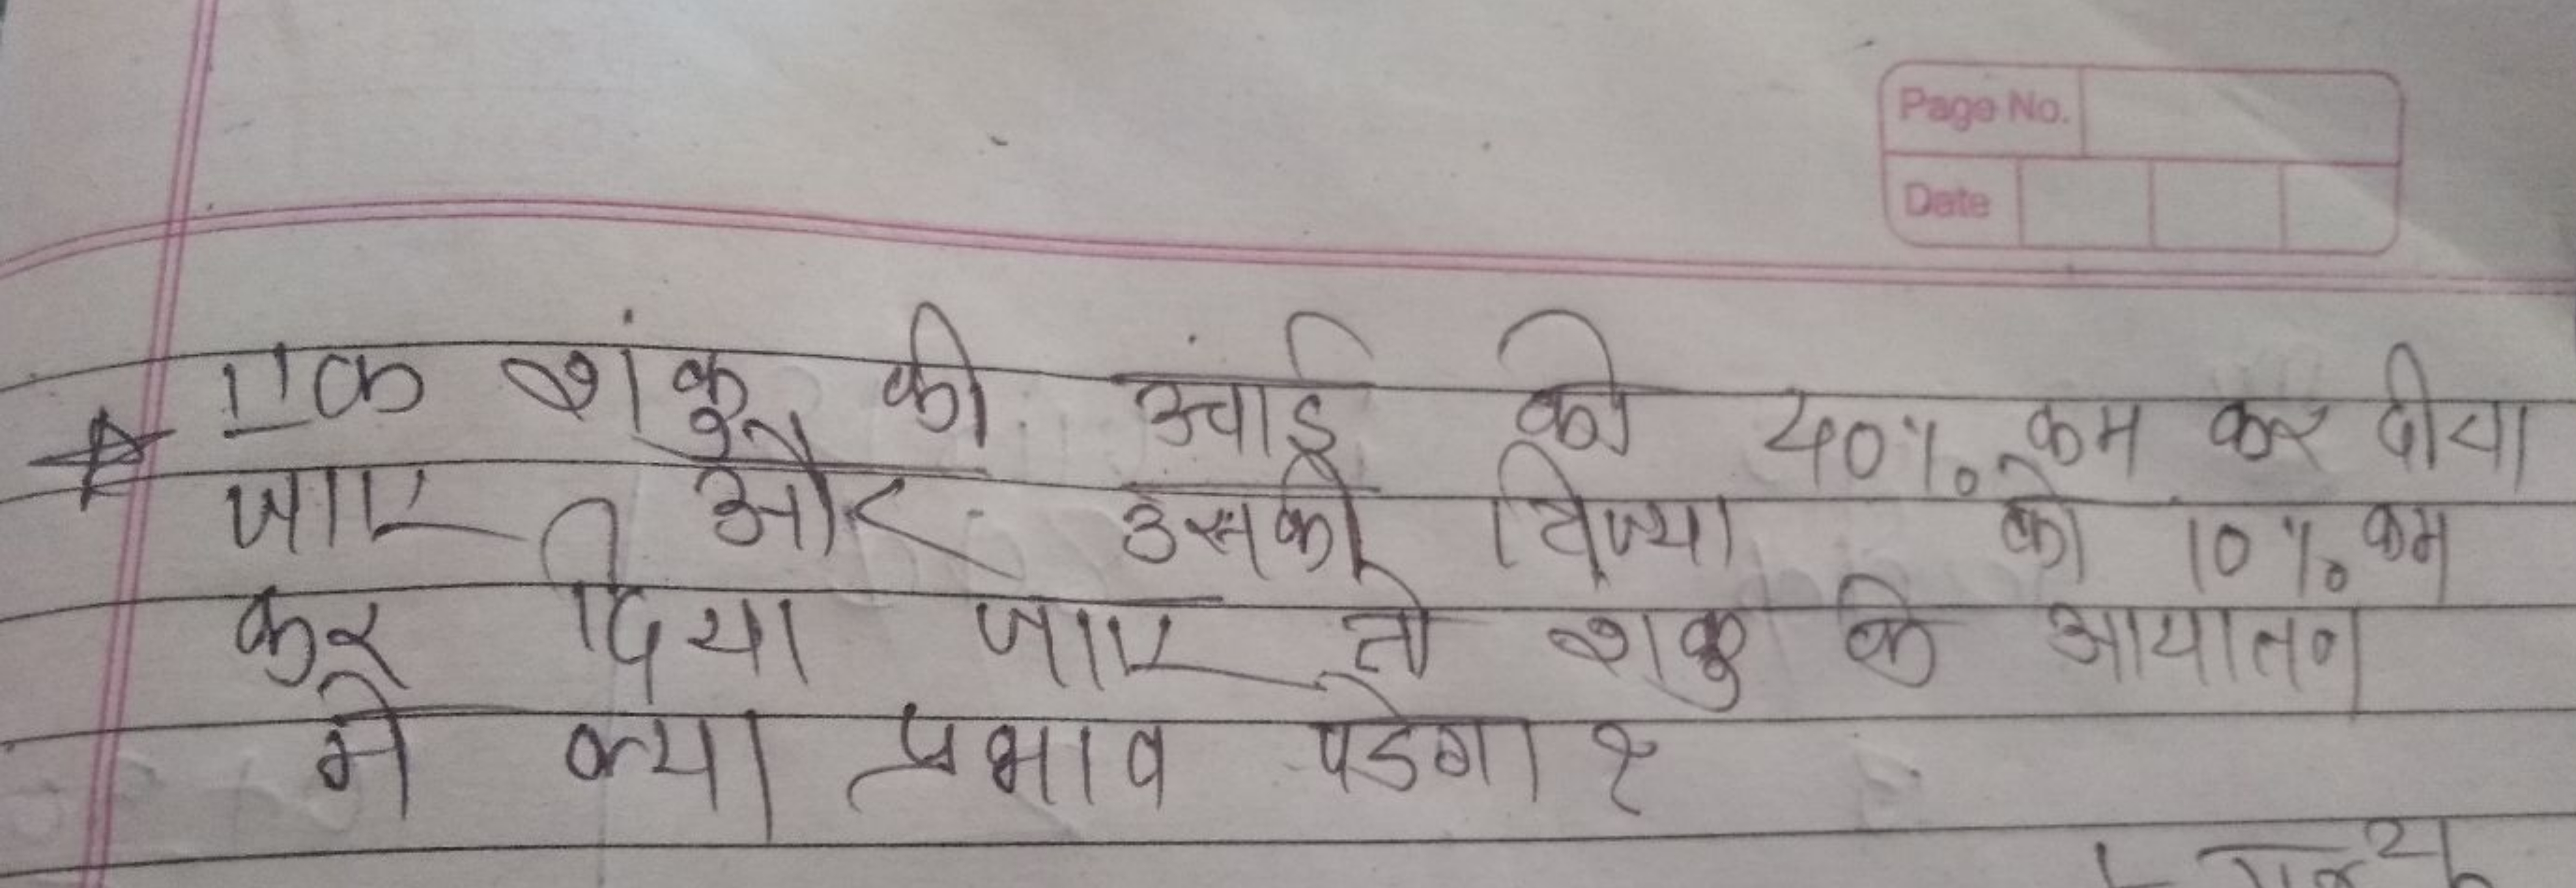 Page No.
Date
एक शंकु की उंचाई को 40% कम कर दीया
जाए और उसकी त्रिज्या को 10% कम
कर दिया जाए तो शकु के आयातन
मे क्या प्रभाव पडेगा ?